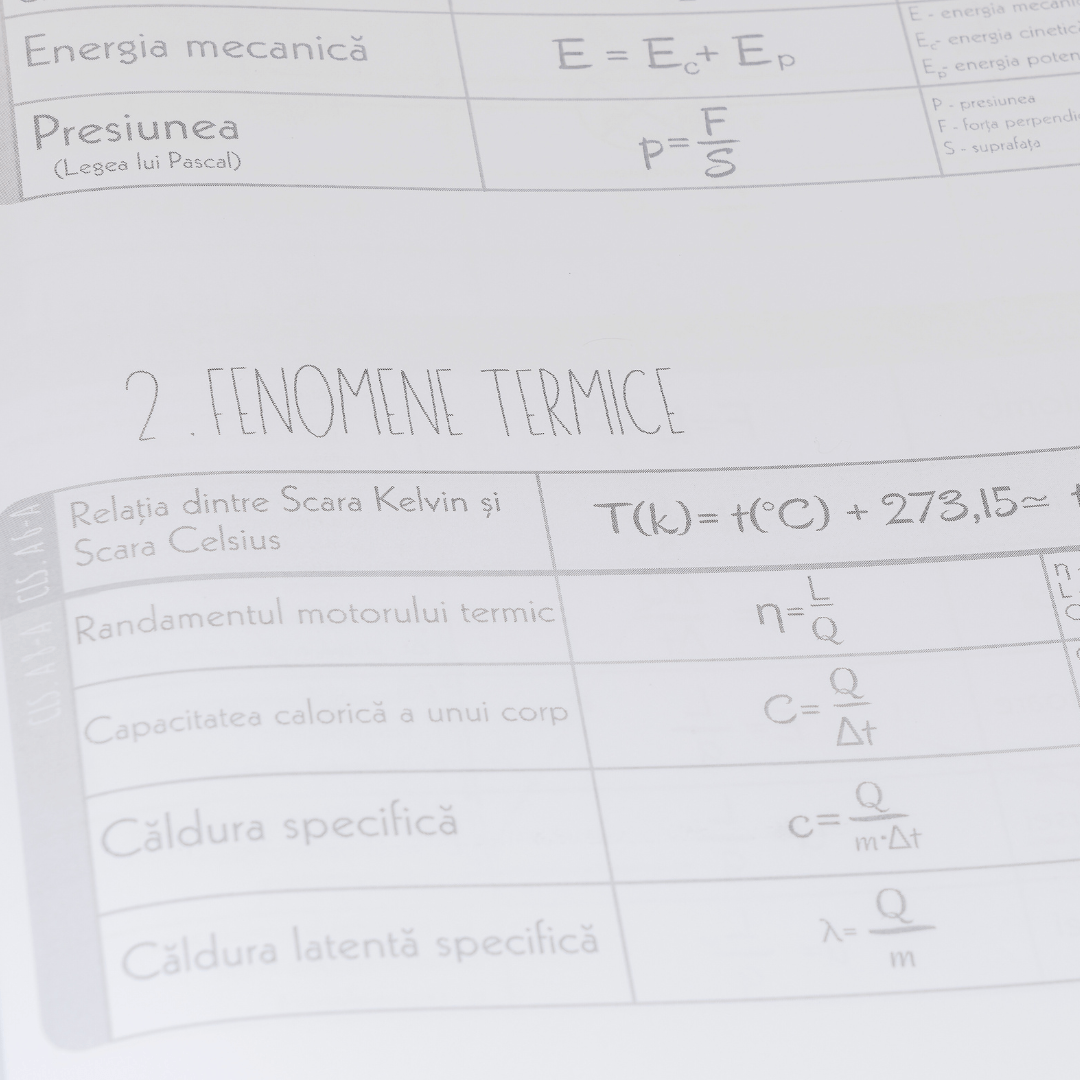 Energia mecanică
E = Ec + Ep
E - energia
Ec - energia cinetică
Ep - energia
Presiunea
(Legea lui Pascal)
p = F/S
P - presiunea
F - forța
S - suprafața
2. FENOMENE TERMICE
Relația dintre Scara Kelvin și
Scara Celsius
T(k) = t(°C) + 273,15 ≃ t
Randamentul motorului termic
η = L/Q
η -
L
Capacitatea calorică a unui corp
C = Q/Δt
Căldura specifică
c = Q/m·Δt
Căldura latentă specifică
λ = Q/m
CLS. A6-A
CLS. A8-A